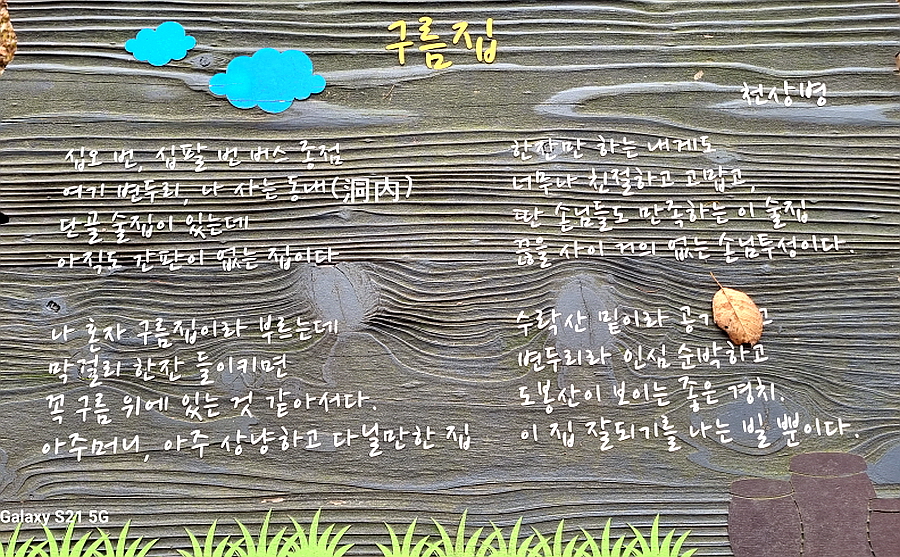 구름집
천상병
십오 번, 십팔 번 버스 종점
여기 변두리, 나 사는 동내(洞内)
단골 술집이 있는데
아직도 간판이 없는 집이다
나 혼자 구름집이라 부르는데
막걸리 한잔 들이키면
꼭 구름 위에 있는 것 같아서다.
아주머니, 아주 상냥하고 다닐만한 집
한잔만 하는 내게도
너무나 친절하고 고맙고,
딴 손님들도 만족하는 이 술집
끊을 사이 거의 없는 손님투성이다.
수락산 밑이라
변두리라 인심 순박하고
도봉산이 보이는 좋은 경치.
이 집 잘되기를 나는 빌 뿐이다.
Galaxy S21 5G